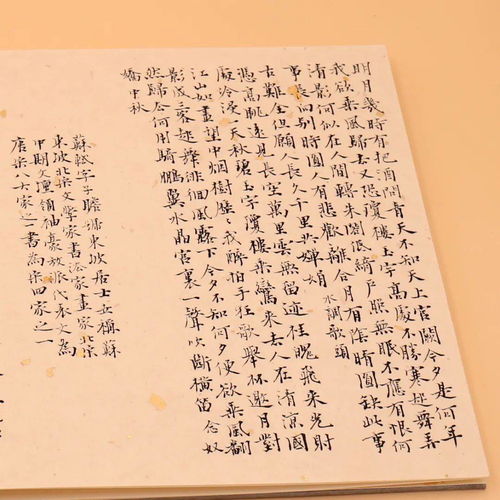 明月幾時有把酒問青天不知天上宮闕今夕是何年
我欲乘風歸去又恐瓊樓玉宇高處不勝寒起舞弄
清影何似在人間轉朱閣低綺戶照無眠不應有恨何
事長向別時圓人有悲歡離合月有陰晴圓缺此事
古難全但願人長久千里共嬋娟 水調歌頭
憑高眺遠見長空萬里雲無留迹桂魄飛來光射
處冷浸一天秋碧玉宇瓊樓乘鸞來去人在清涼國
江山如畫望中烟樹歷〻我醉拍手狂歌舉杯邀月對
影成三客起舞徘徊風露下今夕不知何夕便欲乘風翻
然歸去何用騎鵬翼水晶宮裏一聲吹斷橫笛 念奴
嬌中秋
蘇軾字子瞻號東坡居士世稱蘇
東坡北宋文學家書法家畫家北宋
中期文壇領袖豪放派代表文為
唐宋八大家之一書為宋四家之一